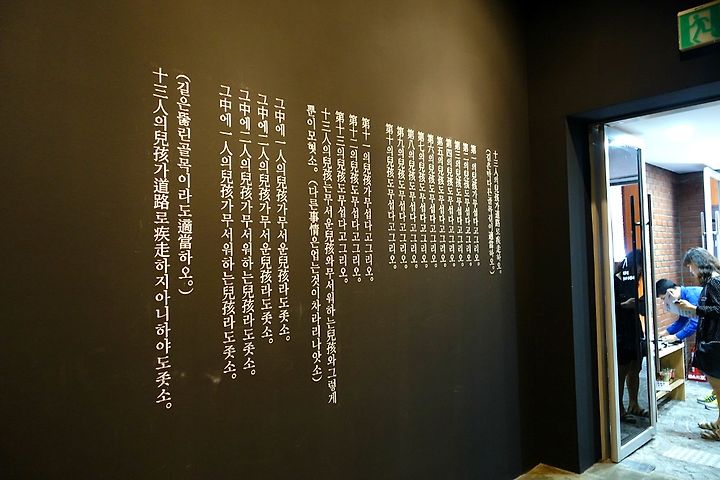 十三人의兒孩가道路로疾走하오。
(길은막다른골목이適當하오。)
第一의兒孩가무섭다고그리오。
第二의兒孩도무섭다고그리오。
第三의兒孩도무섭다고그리오。
第四의兒孩도무섭다고그리오。
第五의兒孩도무섭다고그리오。
第六의兒孩도무섭다고그리오。
第七의兒孩도무섭다고그리오。
第八의兒孩도무섭다고그리오。
第九의兒孩도무섭다고그리오。
第十의兒孩도무섭다고그리오。
第十一의兒孩가무섭다고그리오。
第十二의兒孩도무섭다고그리오。
第十三의兒孩도무섭다고그리오。
十三人의兒孩는무서운兒孩와무서워하는兒孩와그렇게
뿐이모혓소。(다른事情은업는것이차라리나앗소)
그中에一人의兒孩가무서운兒孩라도좃소。
그中에二人의兒孩가무서운兒孩라도좃소。
그中에二人의兒孩가무서워하는兒孩라도좃소。
그中에一人의兒孩가무서워하는兒孩라도좃소。
(길은뚫린골목이라도適當하오。)
十三人의兒孩가道路로疾走하지아니하야도좃소。